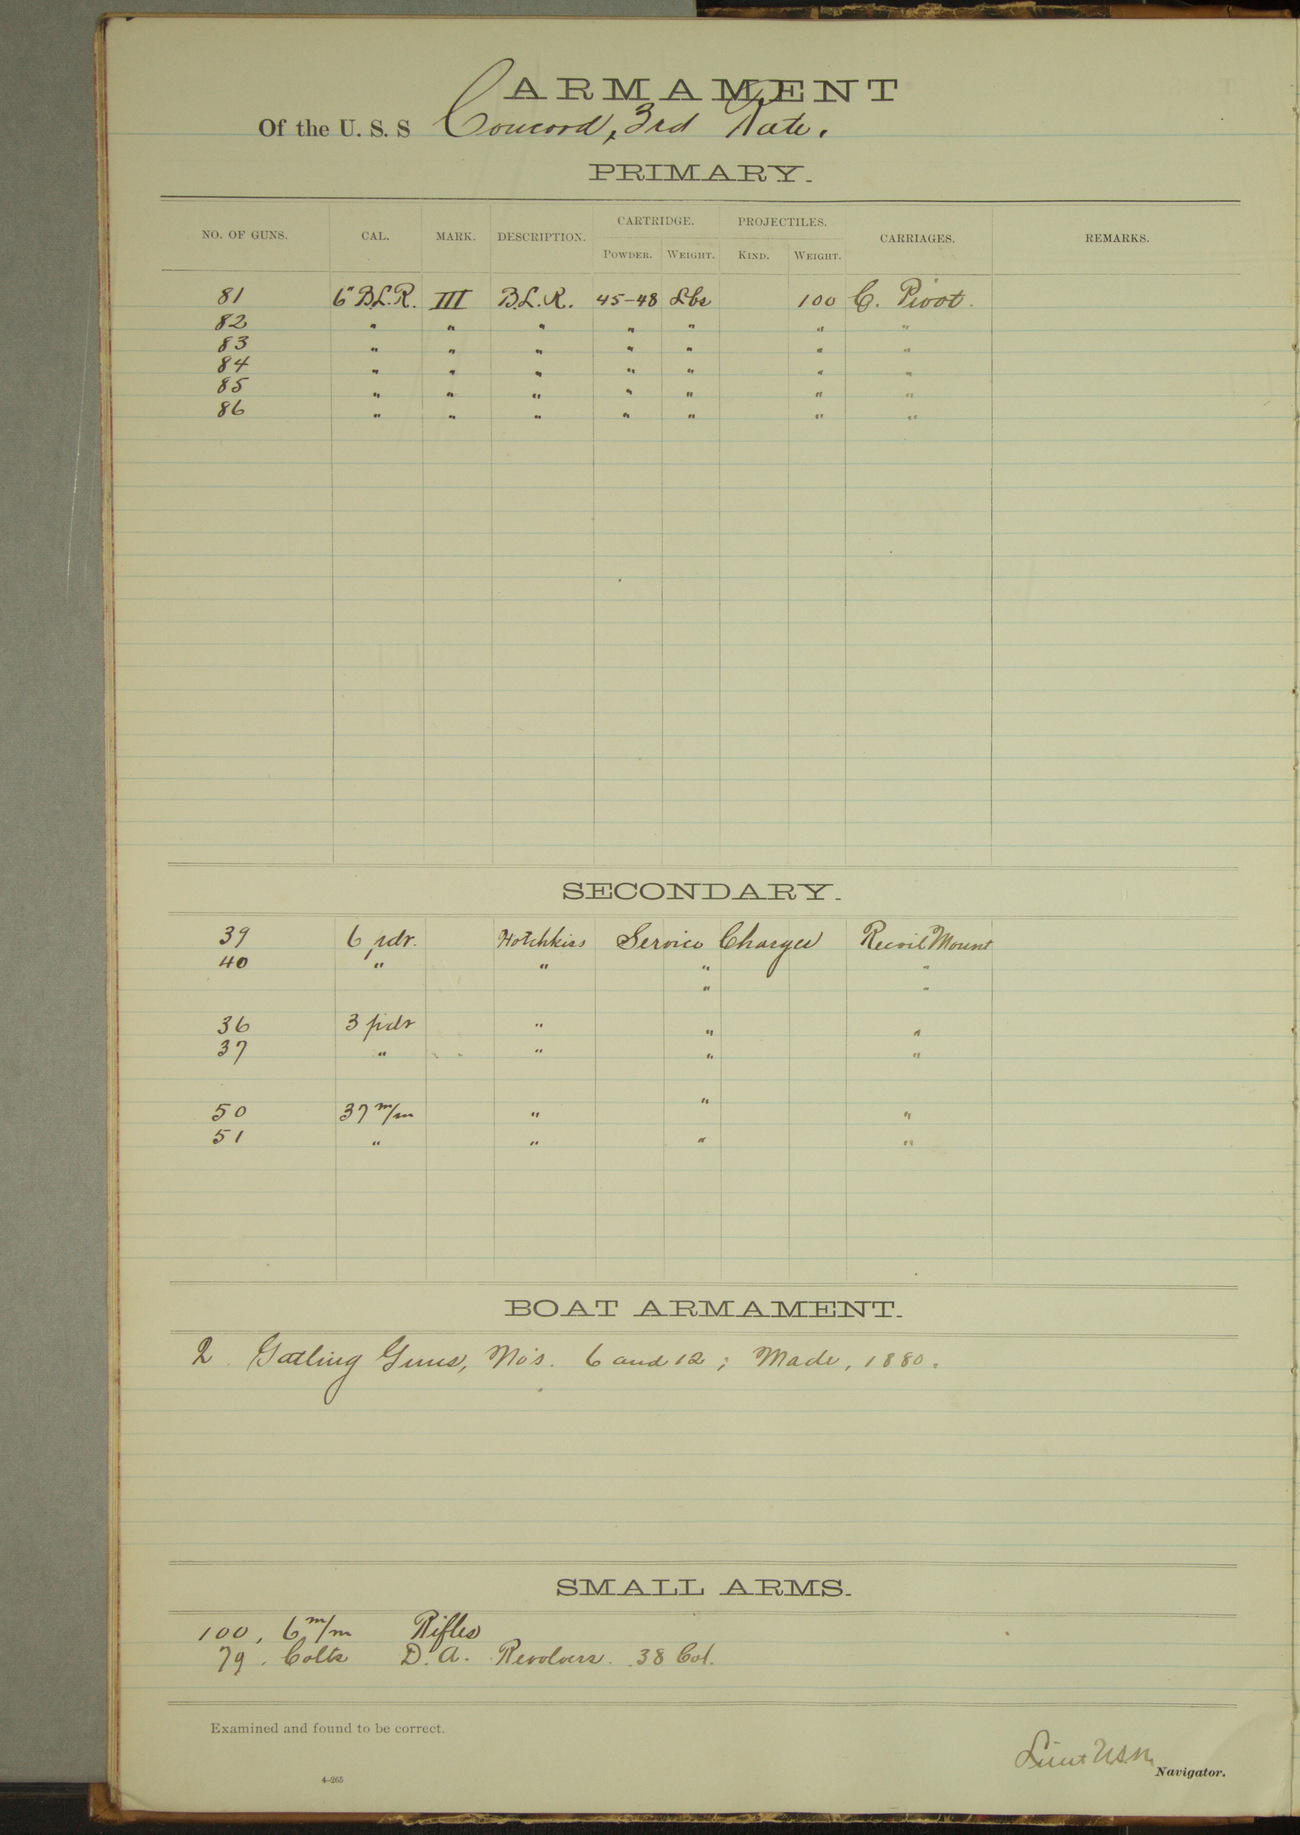 ARMAMENT
Of the U. S. S Concord, 3rd Rate.
PRIMARY.
NO. OF GUNS. CAL. MARK. DESCRIPTION. CARTRIDGE. PROJECTILES. CARRIAGES. REMARKS.
POWDER. WEIGHT. KIND. WEIGHT.
81 6" B.L.R. III B.L.R. 45-48 Lbs 100 C. Pivot.
82 " " " " " " "
83 " " " " " " "
84 " " " " " " "
85 " " " " " " "
86 " " " " " " "
SECONDARY.
39 6 pdr. Hotchkiss Service Charges Recoil Mount
40 " " " "
" "
36 3 pdr " " "
37 " " " "
"
50 37 m/m " "
51 " " " "
BOAT ARMAMENT.
2 Gatling Guns, No's. 6 and 12; Made, 1880.
SMALL ARMS.
100, 6 m/m Rifles
79. Colts D. A. Revolvers. .38 Cal.
Examined and found to be correct.
Lieut U.S.N.
Navigator.
4-265